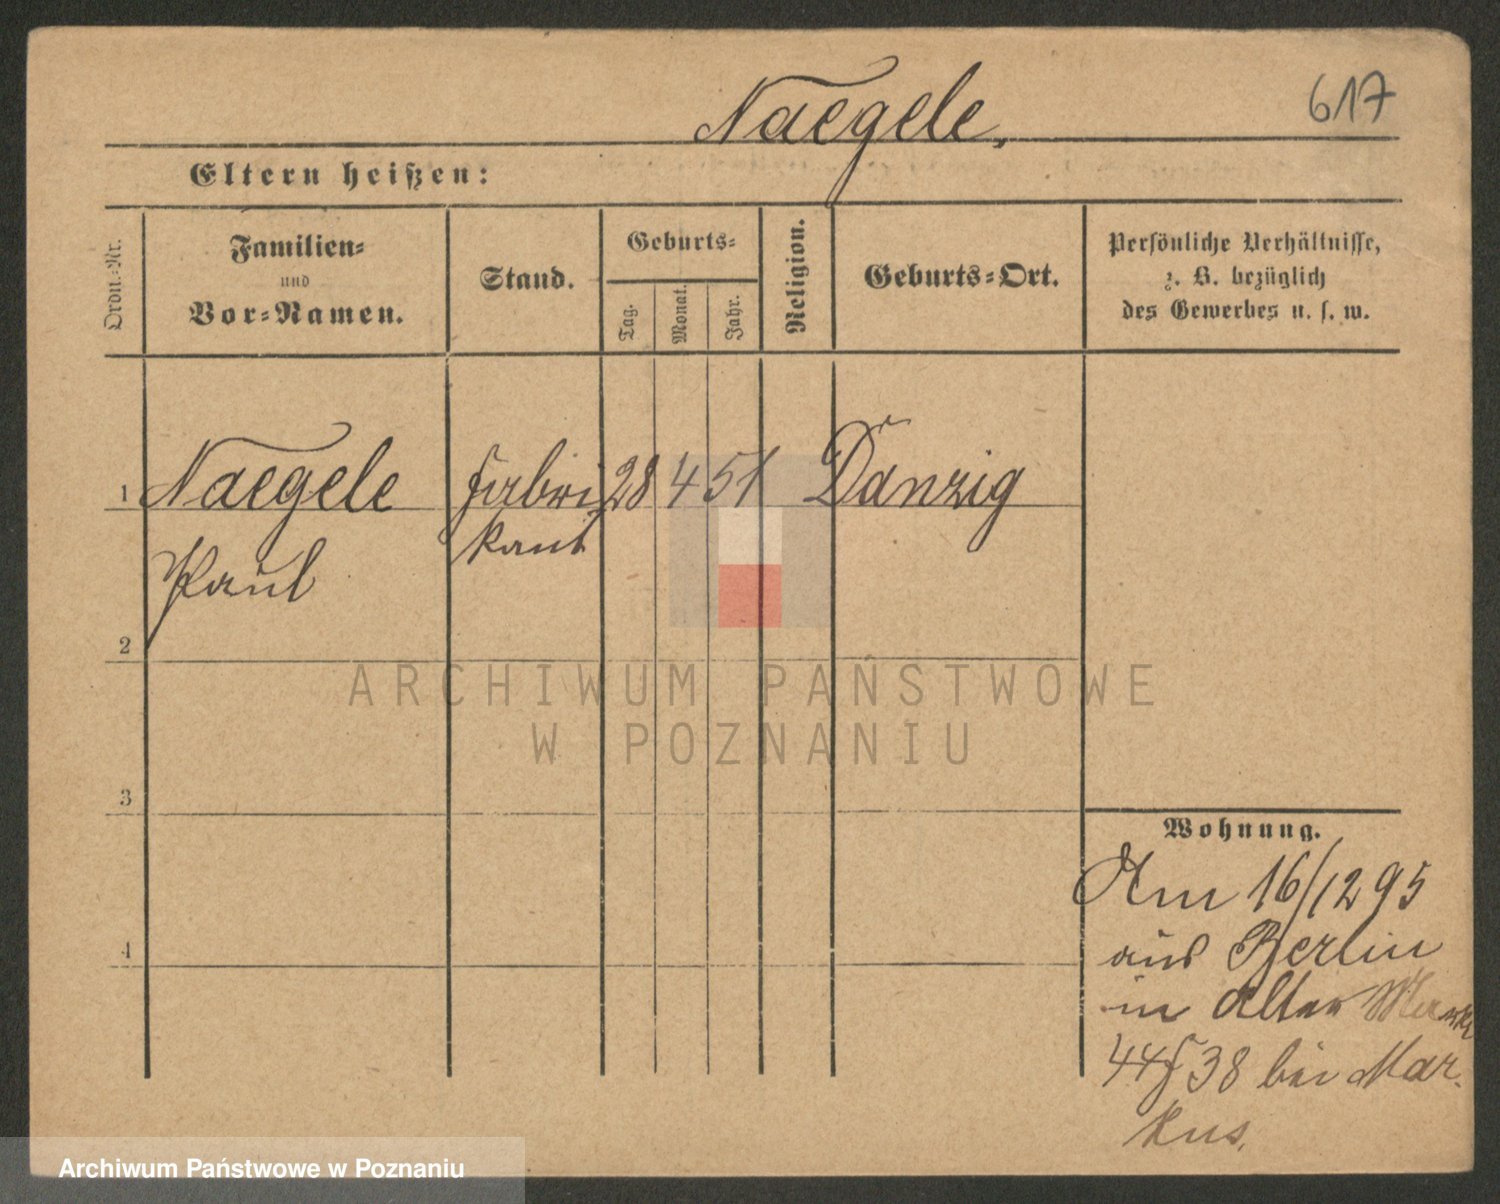 Naegele.
617
Eltern heißen:
Ordn.-Nr.
Familien-
und
Vor-Namen.
Stand.
Geburts-
Tag.
Monat.
Jahr.
Religion.
Geburts-Ort.
Persönliche Verhältnisse,
z. B. bezüglich
des Gewerbes u. s. w.
1 Naegele Fabri- 28 4 51 Danzig
Paul kant
2
3
4
Wohnung.
Am 16/12 95
aus Berlin
in Alter Markt
38 bei Mar-
kus.
ARCHIWUM PAŃSTWOWE
W POZNANIU
Archiwum Państwowe w Poznaniu